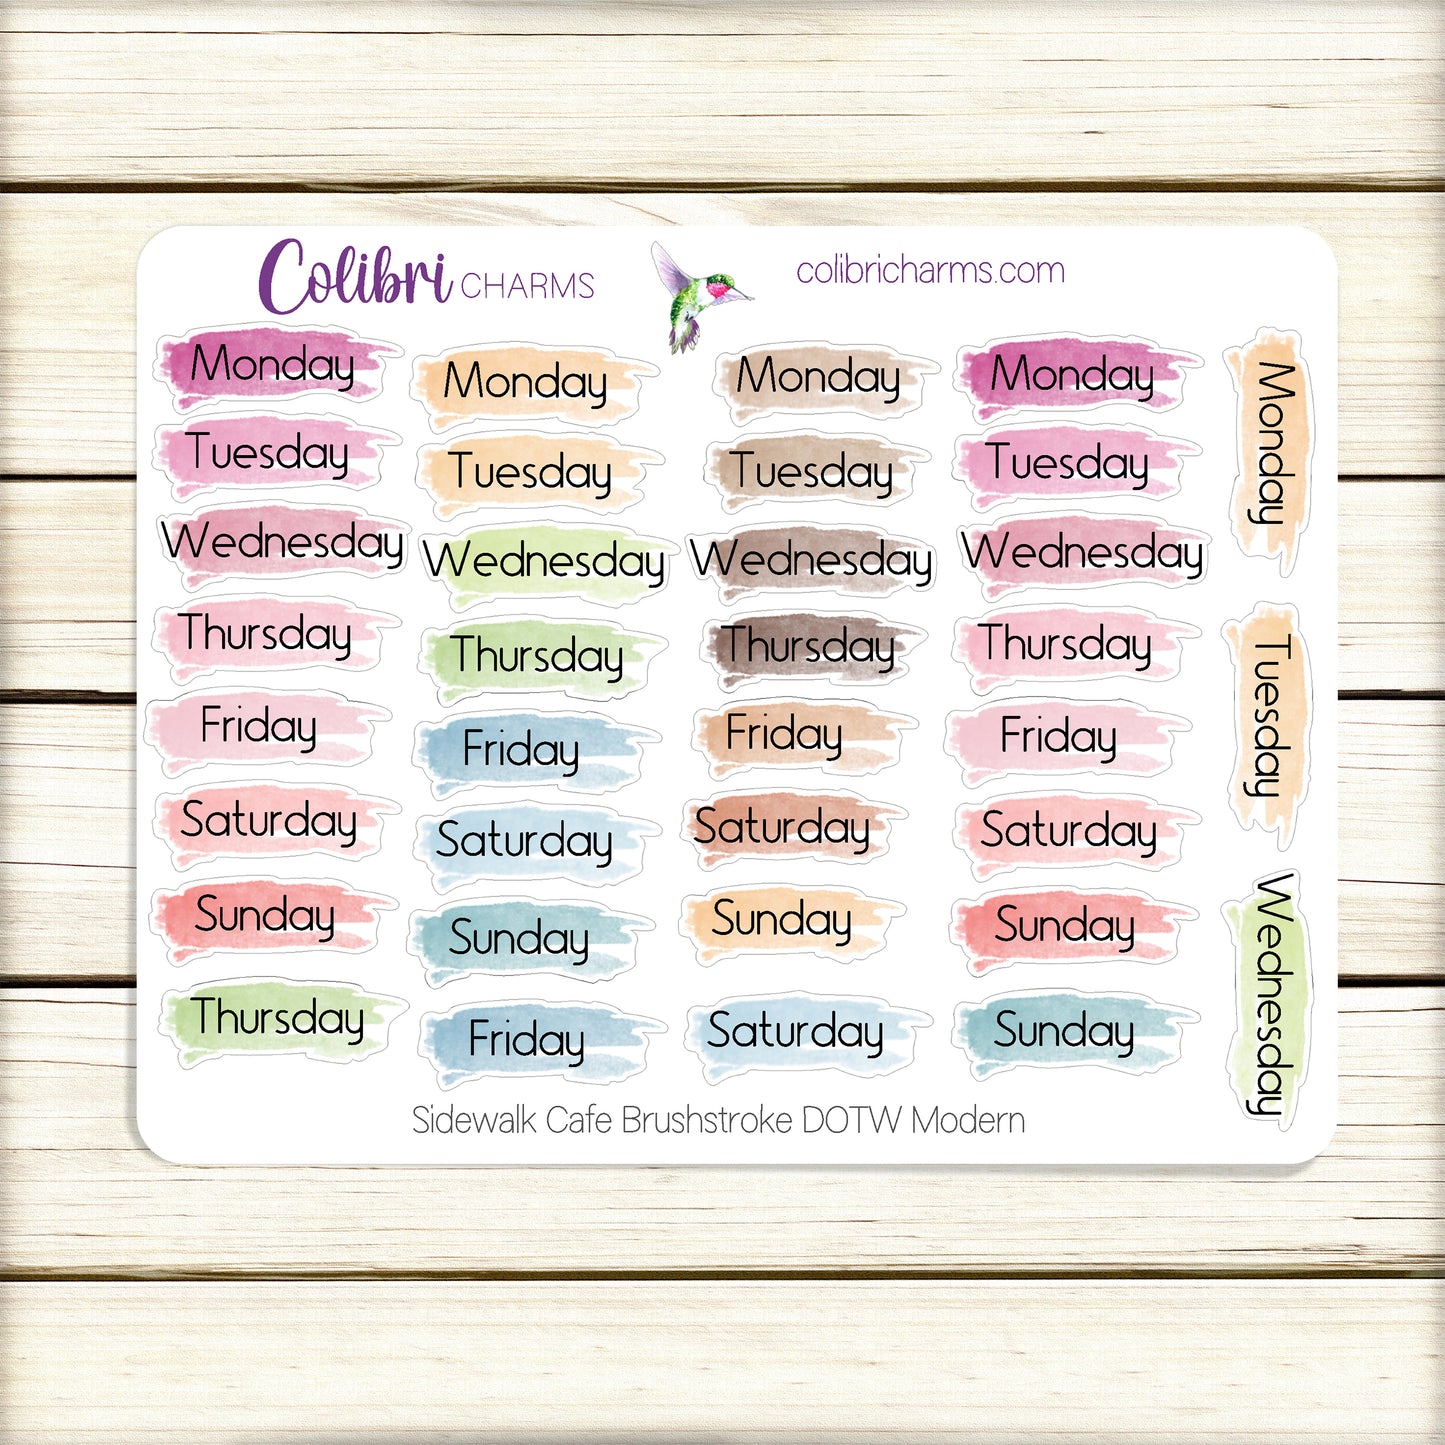 Colibri CHARMS
colibricharms.com
Monday
Tuesday
Wednesday
Thursday
Friday
Saturday
Sunday
Thursday
Monday
Tuesday
Wednesday
Thursday
Friday
Saturday
Sunday
Friday
Monday
Tuesday
Wednesday
Thursday
Friday
Saturday
Sunday
Saturday
Monday
Tuesday
Wednesday
Thursday
Friday
Saturday
Sunday
Sunday
Monday
Tuesday
Wednesday
Sidewalk Cafe Brushstroke DOTW Modern